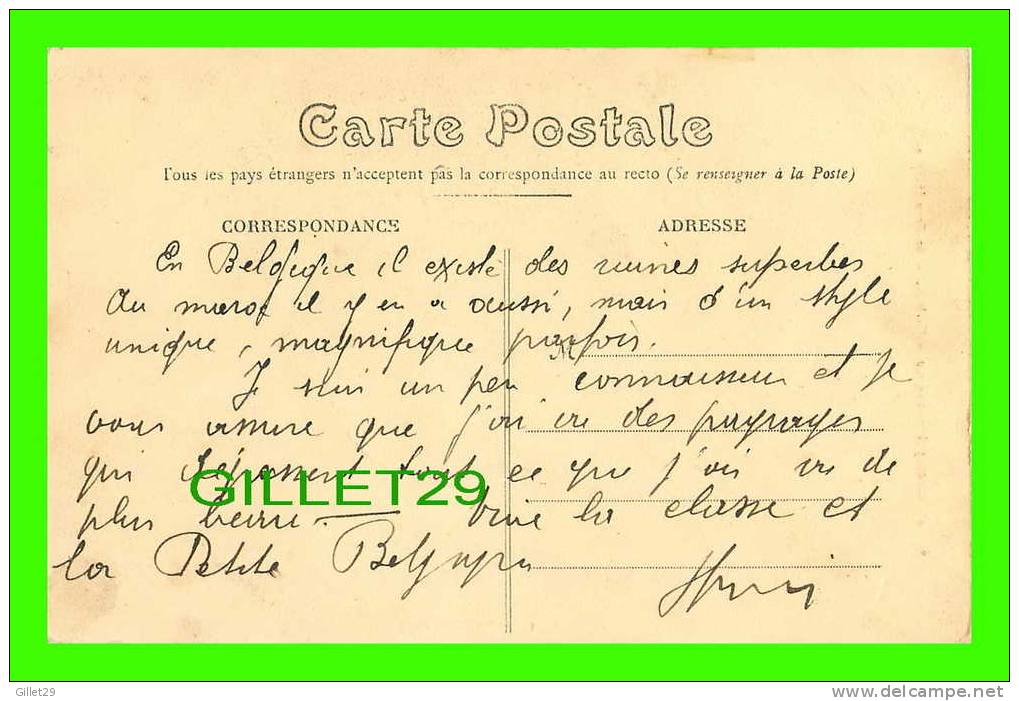 Carte Postale
Tous les pays étrangers n'acceptent pas la correspondance au recto (Se renseigner à la Poste)
CORRESPONDANCE ADRESSE
En Belgique il existe des ruines superbes
Au maroc il y en a aussi, mais d'un style
unique, magnifique parfois.
M
Je suis un peu connaisseur et je
vous assure que j'ai vu des paysages
qui dépassent tout ce que j'ai vu de
GILLET29
plus beau. — Vive la classe et
la Petite Belgique
Henri
Gillet29
http://www.delcampe.net